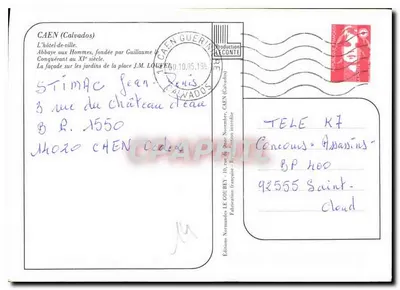 CAEN (Calvados)
L'hôtel de ville.
Abbaye aux Hommes, fondée par Guillaume le
Conquérant au XIe siècle.
La façade sur les jardins de la place J.M. LOUVEL
Production
LECONTE
CAEN GUERINIERE
CALVADOS
STIMAC Jean-Denis
3 rue du Château d'eau
B.P. 1550
14020 CAEN Cedex
TELE K7
Concours "Assassins"
BP 400
92555 Saint-
Cloud
Editions Normandes LE GOUBEY - CAEN (Calvados)
Fabrication française